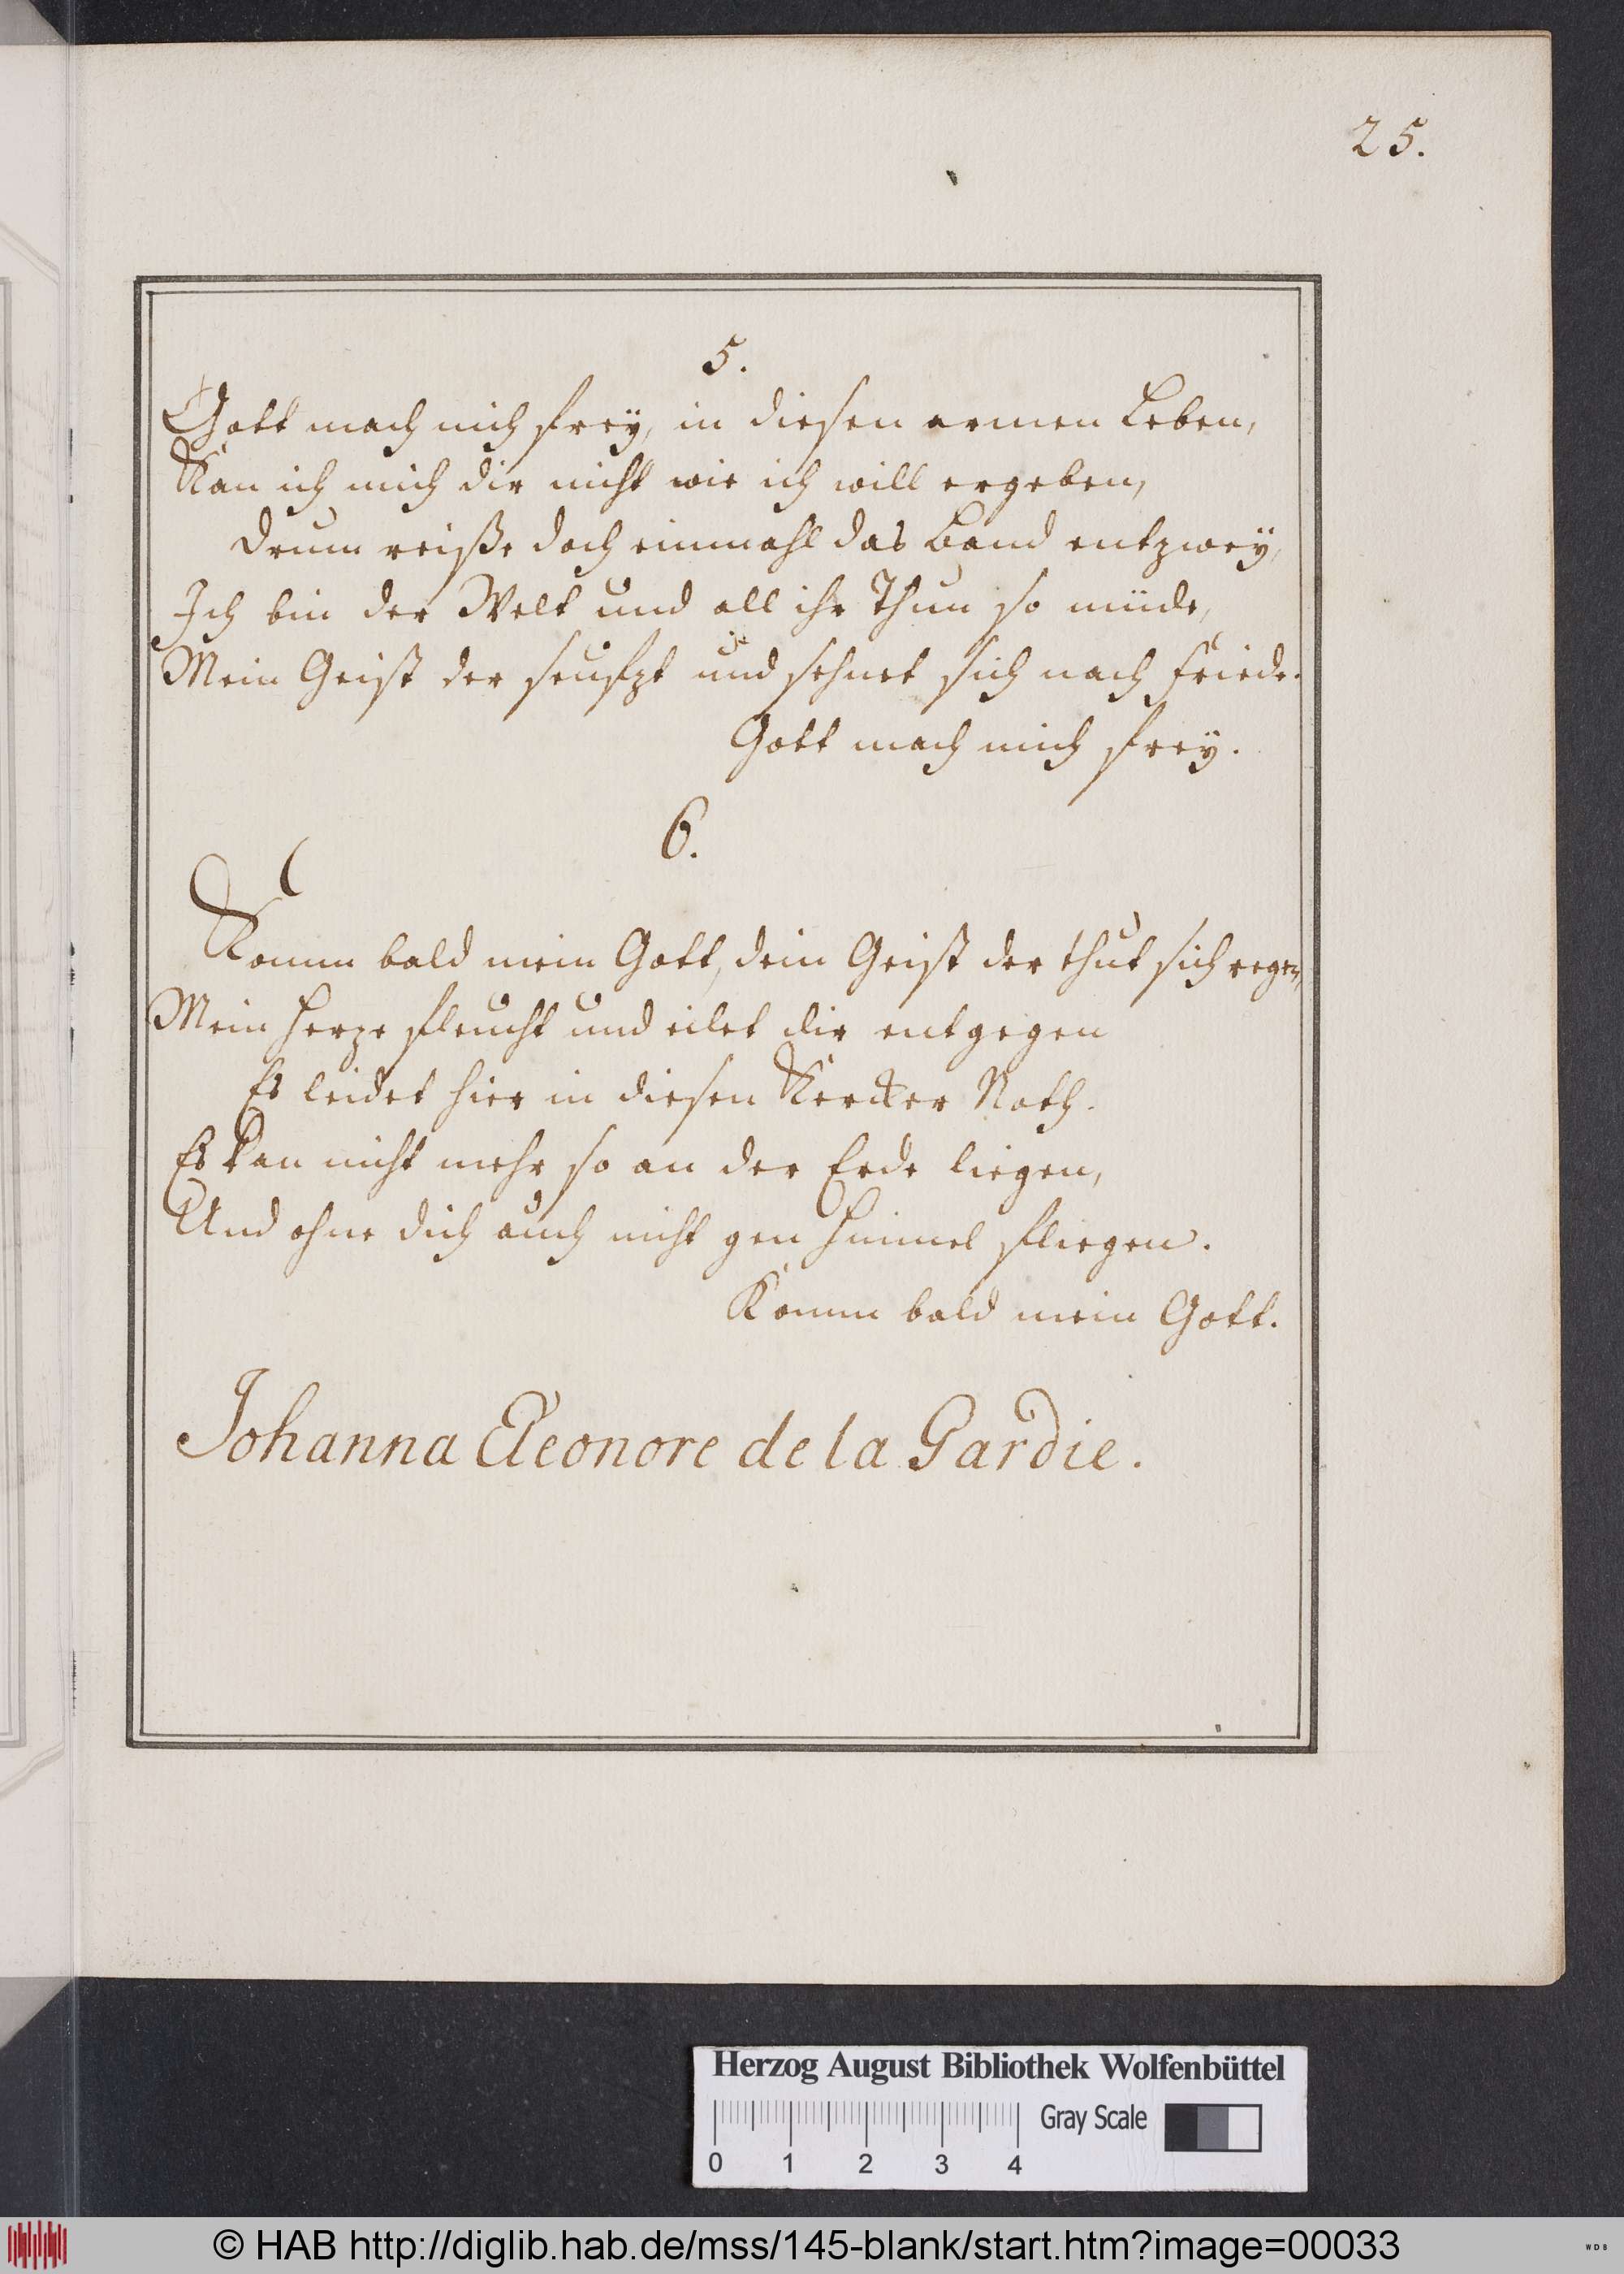 25.
5.
Gott mach mich frey, in diesen armen Leben,
Kan ich mich dir nicht wie ich will ergeben,
Drum reiße doch einmahl das Band entzwey,
Ich bin der Welt und all ihr Thun so müde,
Mein Geist der seufzt und sehnet sich nach Friede.
Gott mach mich frey.
6.
Komm bald mein Gott, dein Geist der thut sich regen,
Mein Herze fleucht und eilet dir entgegen
Es leidet hier in diesen Kercker Noth.
Es kan nicht mehr so an der Erde liegen,
Und ohne dich auch nicht gen Himmel fliegen.
Komm bald mein Gott.
Johanna Eleonore de la Gardie.
Herzog August Bibliothek Wolfenbüttel
Gray Scale
0 1 2 3 4
© HAB http://diglib.hab.de/mss/145-blank/start.htm?image=00033
WDB